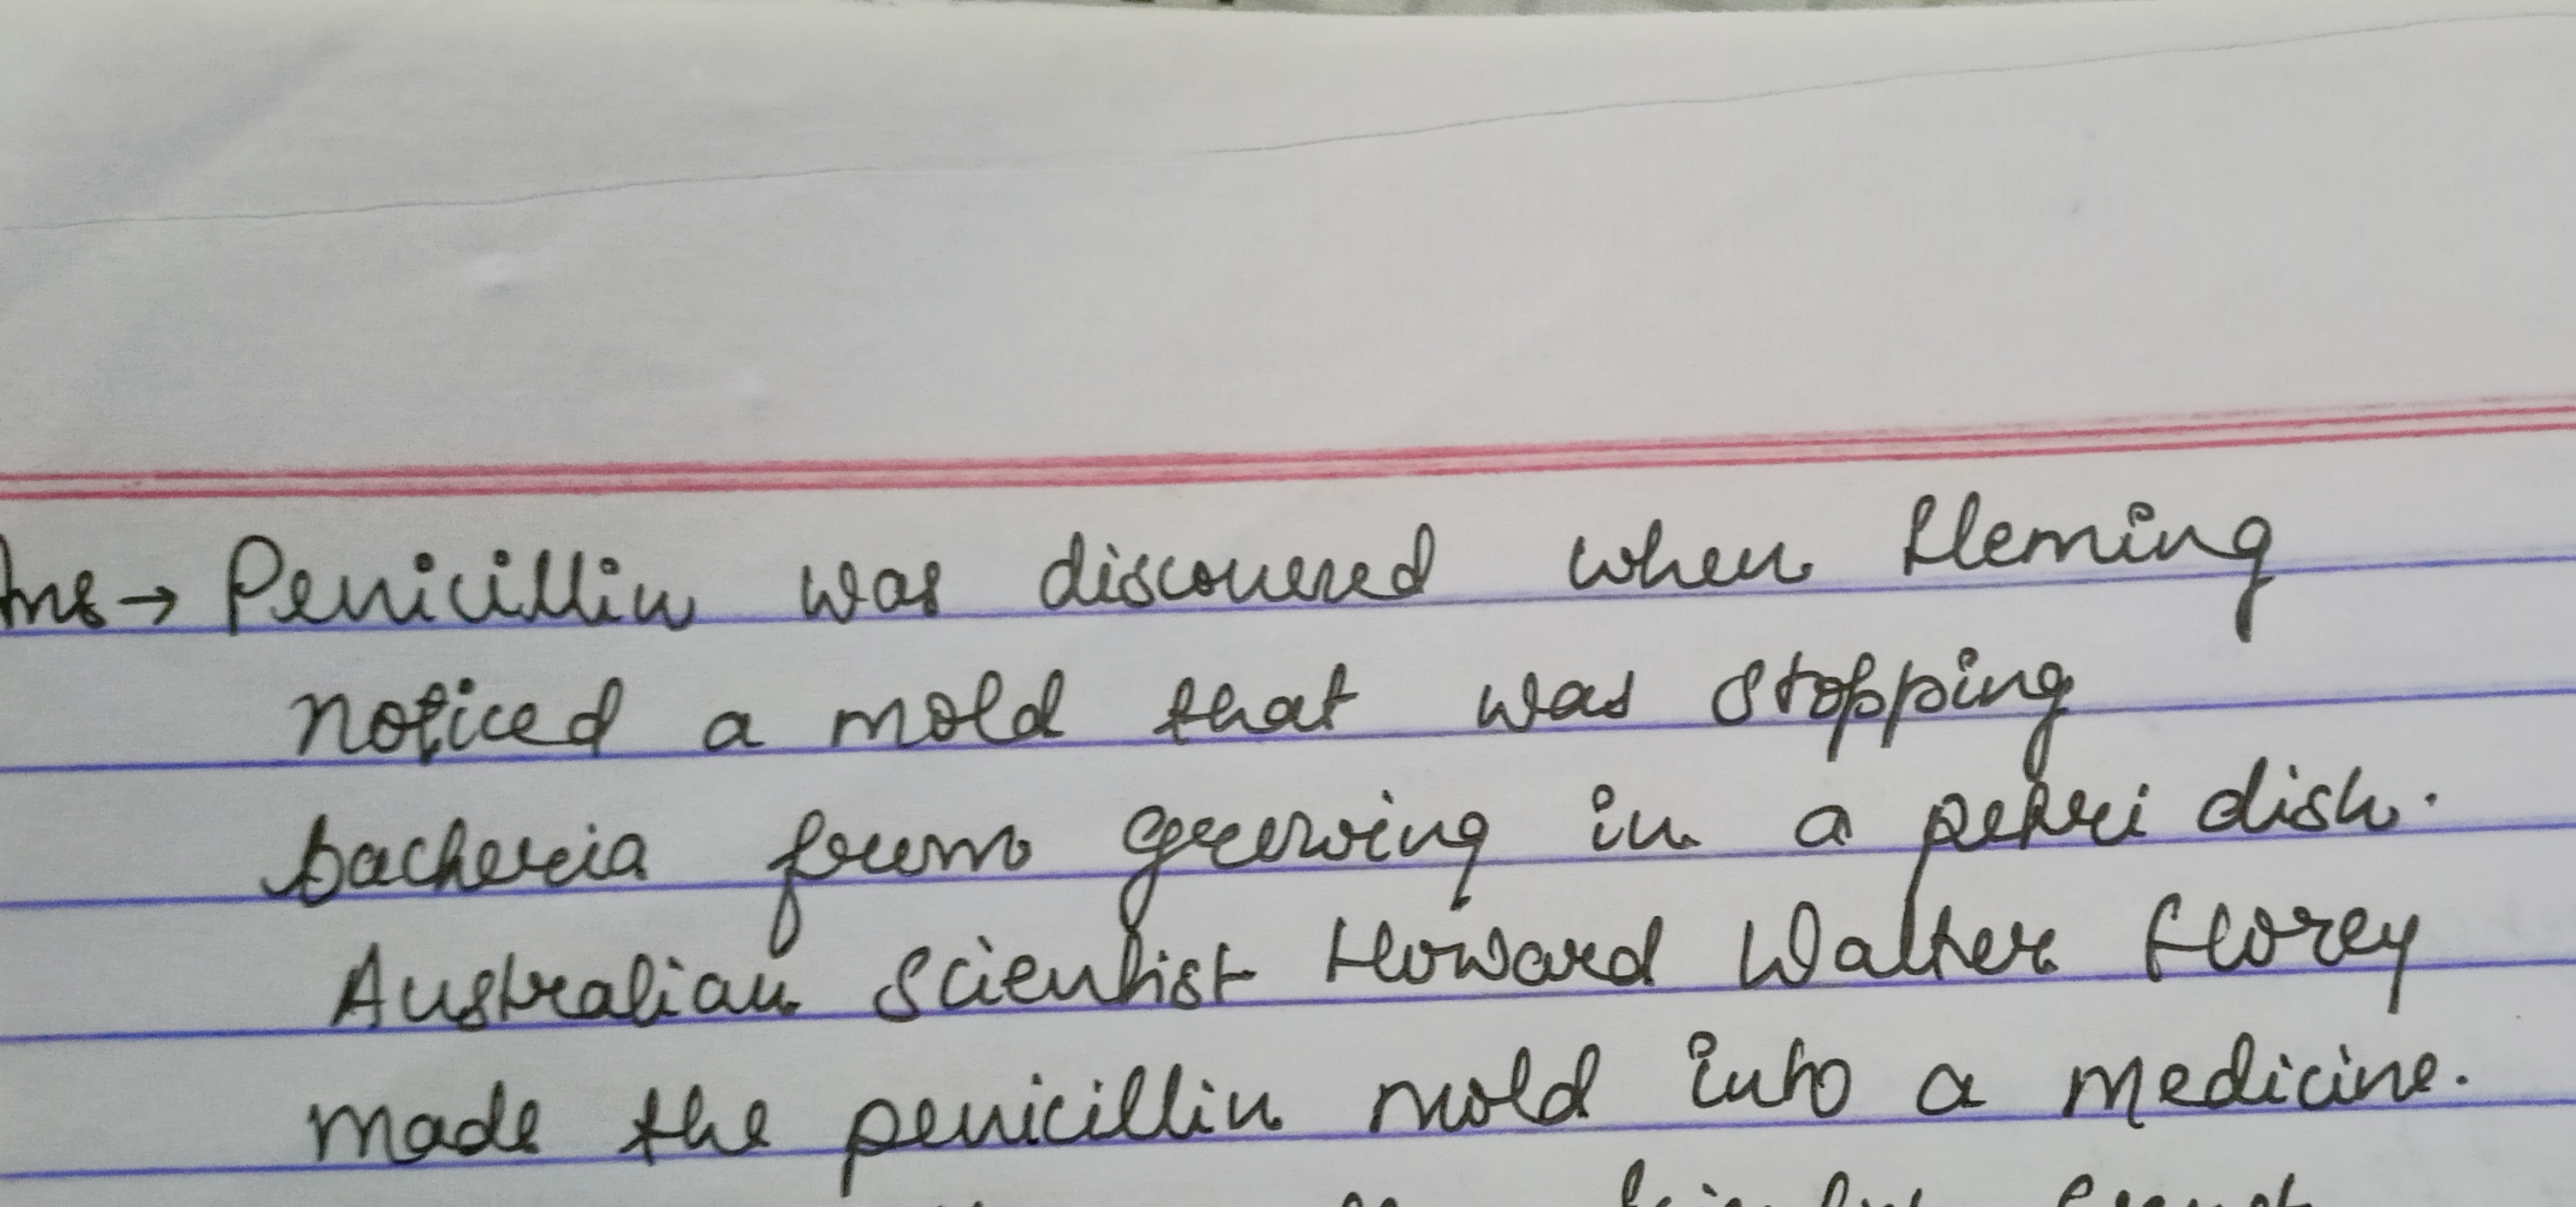 Ans → Penicillin was discovered when Fleming
noticed a mold that was stopping
bacteria from growing in a petri dish.
Australian Scientist Howard Walter Florey
made the penicillin mold into a medicine.